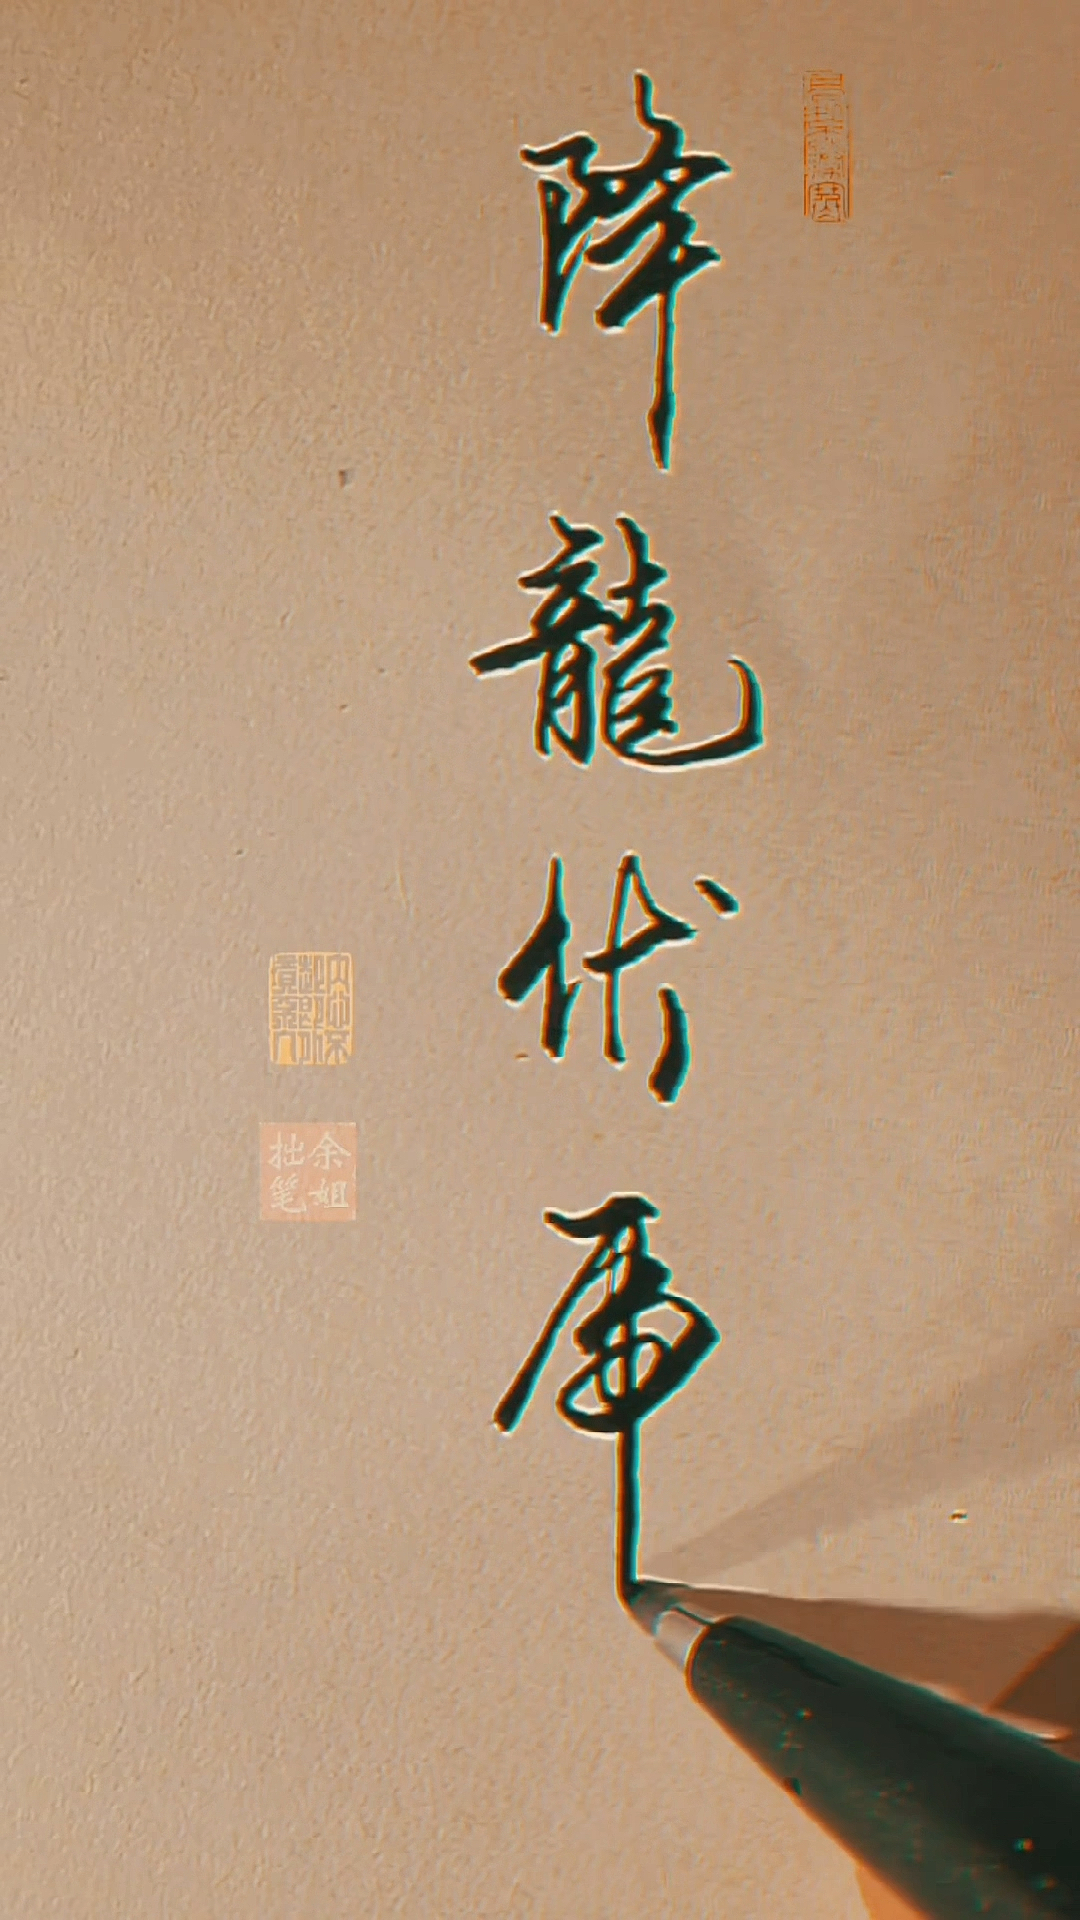 降龍伏虎
余姐
拙笔